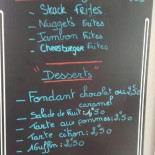 - Steack Frites
- Nuggets Frites
- Jambon Frites
- Cheesburger Frites
"Desserts"
- Fondant chocolat ou 2,50
caramel
- Salade de Fruit 4,50
- Tarte aux pommes 2,50
- Tarte citron: 2,50
- Muffin: 2,50